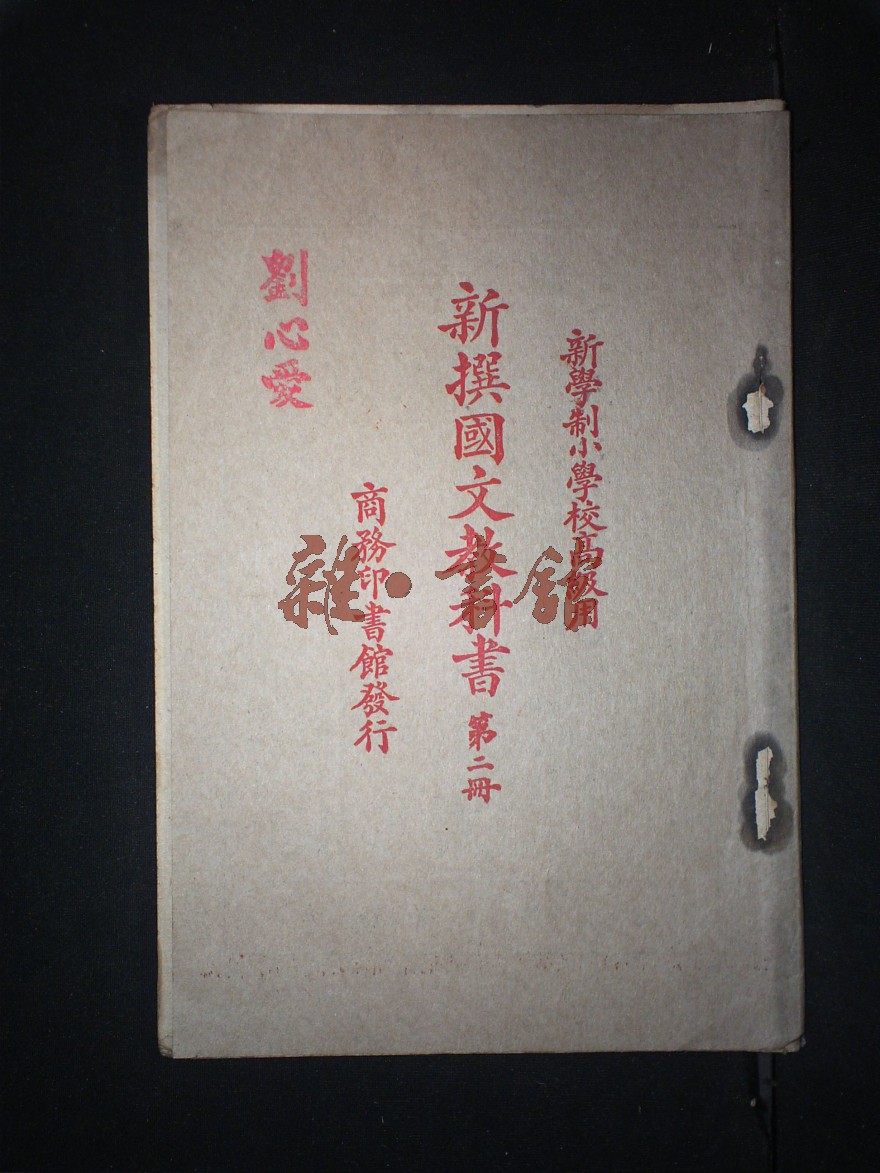 新學制小學校高級用
新撰國文教科書 第二冊
商務印書館發行
劉心愛
雜·書館